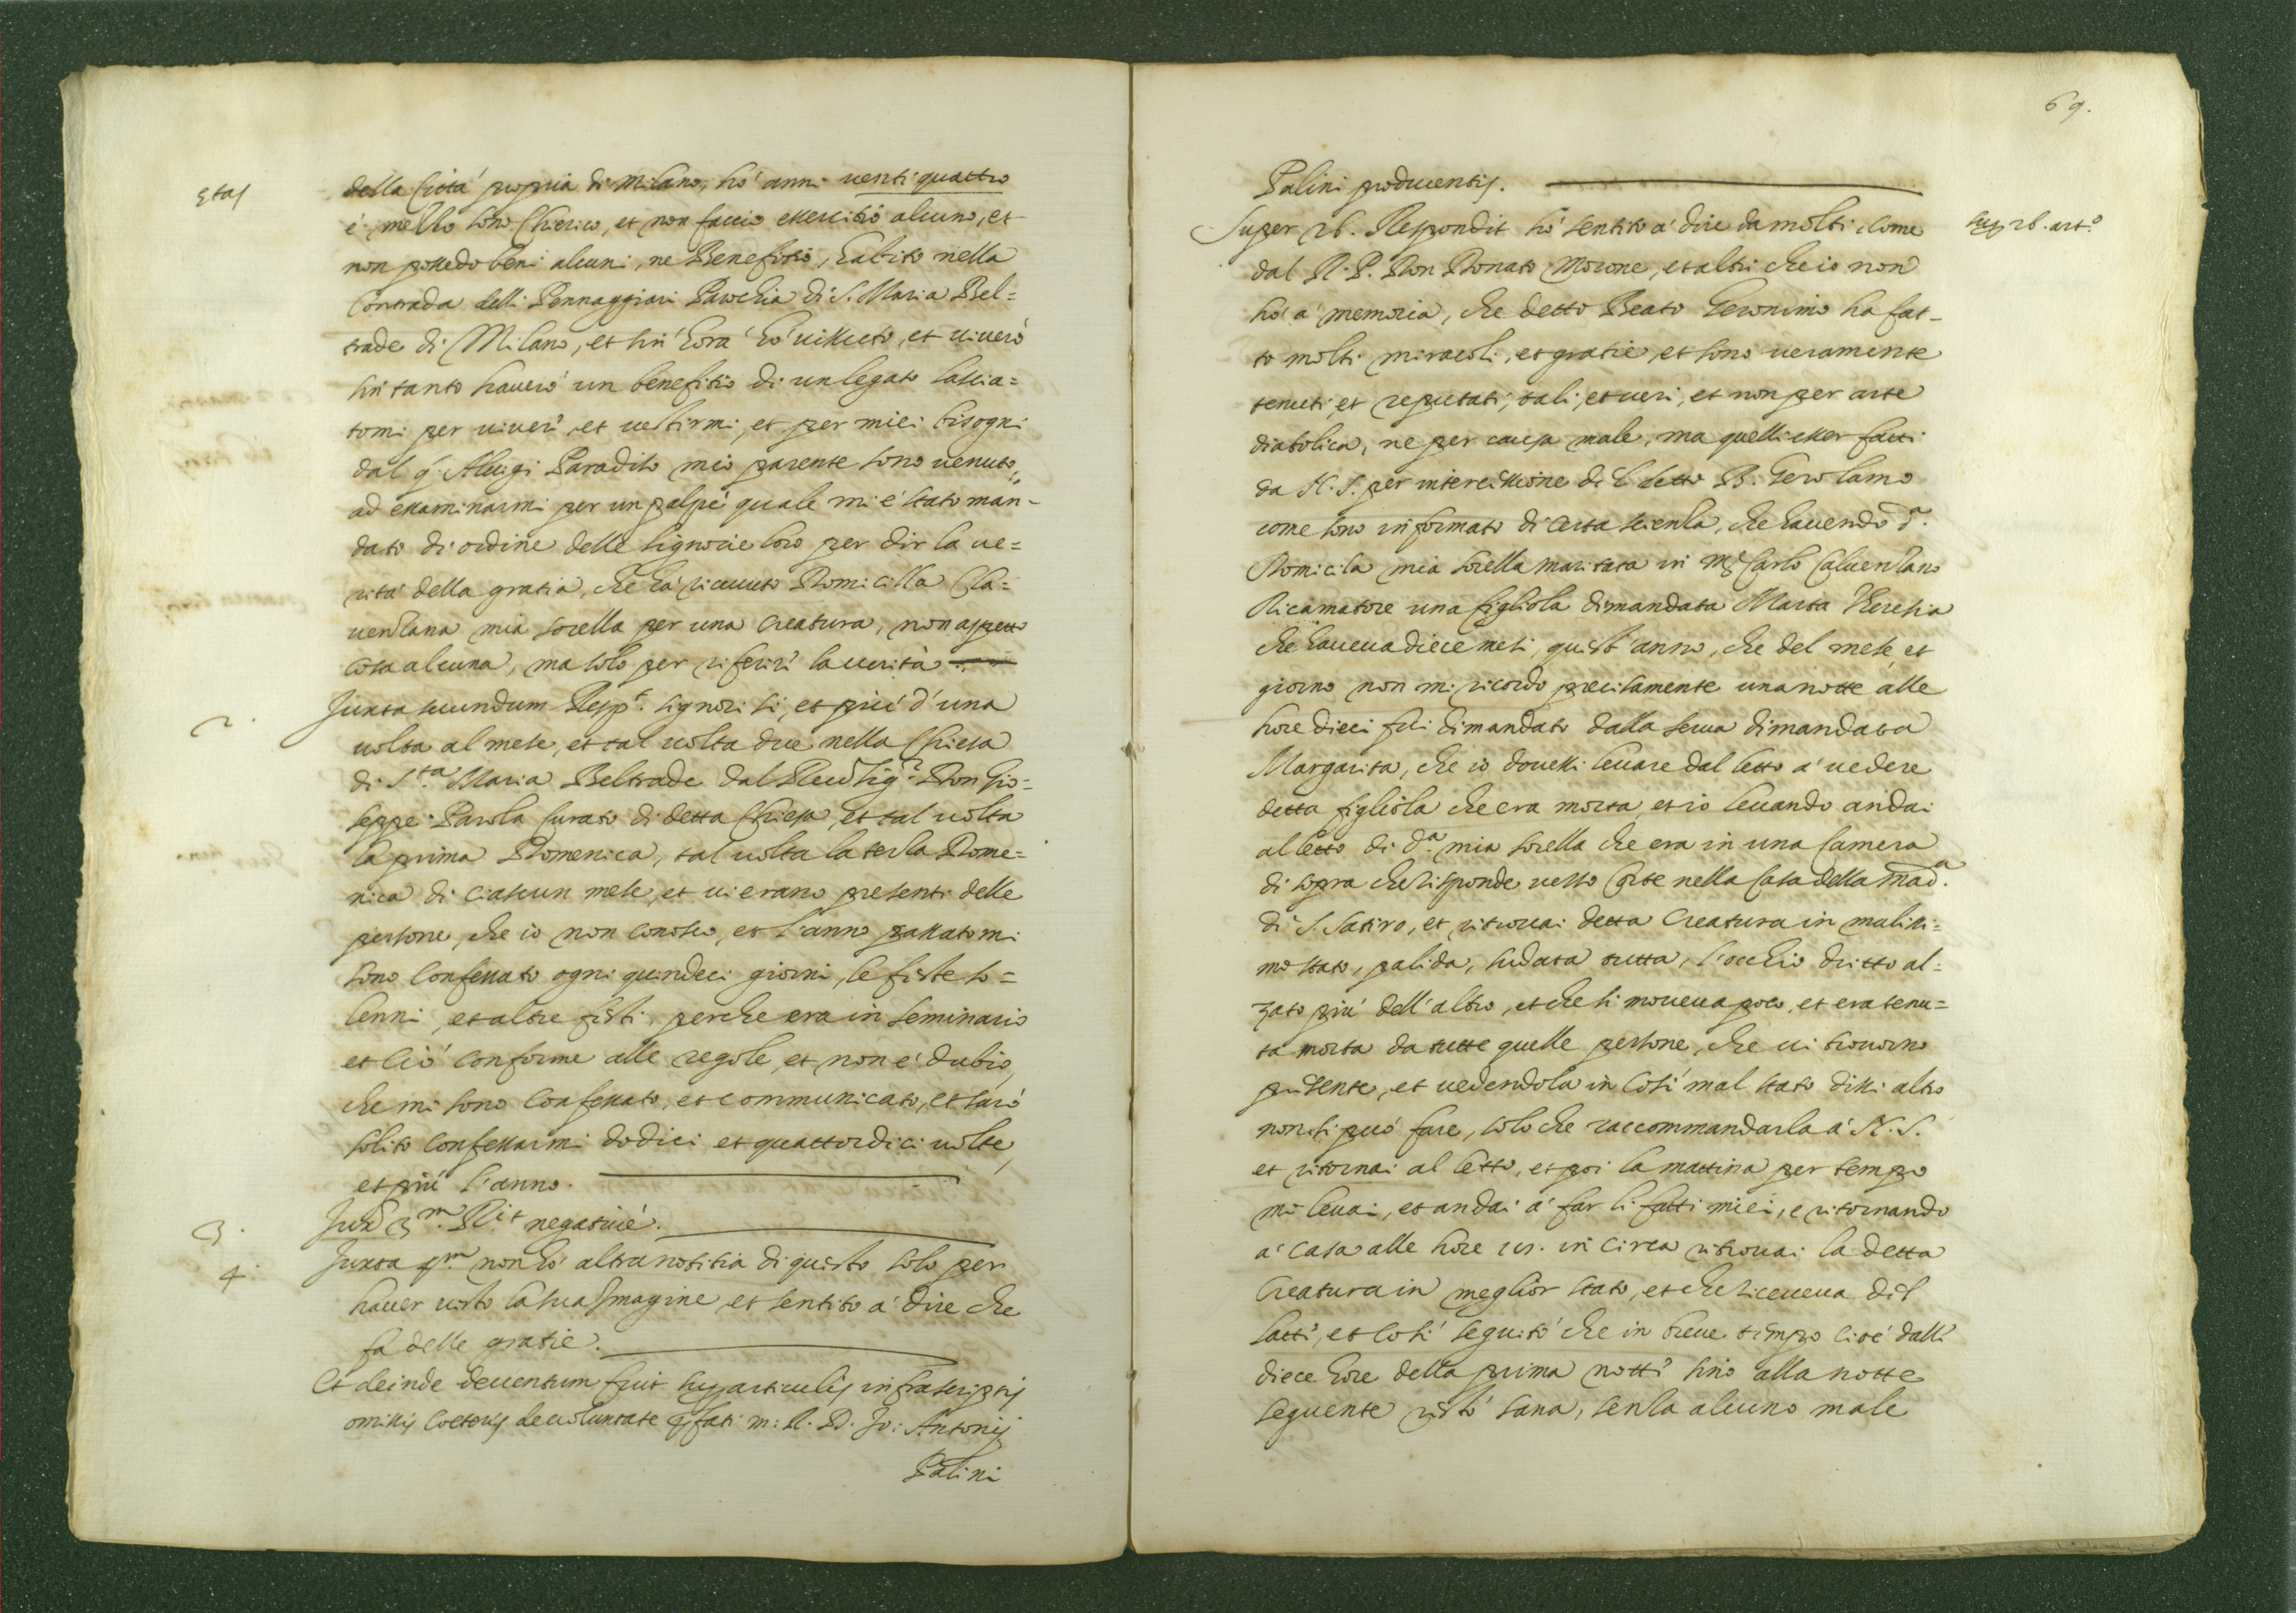 Etas
della Città propria di Milano, hò anni venti quattro
è mezzo sono Chierico, et non faccio essercitio alcuno, et
non possedo beni alcuni, ne Benefitio, habito nella
Contrada delli Pennaggiari Parochia di S. Maria Bel=
trade di Milano, et sin' hora hò vissuto, et viverò
sin tanto haverò un benefitio di un legato lascia=
tomi per viver, et vestirmi, et per miei bisogni
dal q. Aluigi Paradiso mio parente sono venuto
ad essaminarmi per un palpè quale mi è stato man-
dato di ordine delle Signorie loro per dir la ve=
rità della gratia, che hà ricevuto Domicilla Cla=
venzana mia sorella per una Creatura, non aspetto
cosa alcuna, ma solo per riferir la verità
2. Juxta secundum Resp.t signori si, et più d'una
volta al mese, et tal volta due nella Chiesa
di S.ta Maria Beltrade dal Revd Sig.r Don Gio=
seppe Parola Curato di detta Chiesa, et tal volta
la prima Domenica, tal volta la terza Dome=
nica di ciascun mese, et vi erano presenti delle
persone, che io non conosco, et l'anno passato mi
sono confessato ogni quindeci giorni, le feste so=
lenni, et altre festi, perche era in seminario
et ciò conforme alle regole, et non è dubio,
che mi sono confessato, et communicato, et sarò
solito confessarmi dodici et quattordici volte,
et più l'anno.
3. Juxa 3.m R.it negative.
4. Juxta 4.m non hò altra notitia di questo solo per
haver visto la sua Imagine, et sentito à dire che
fa delle gratie.
Et deinde deventum fuit super articulis infrascriptis
omissis coeteris de voluntate pfati m: R. D. Jo: Antonij
Palini
69.
Palini producentis.
Super 26. Respondit hò sentito à dire da molti come
sup 26. art.o
dal R. P. Don Donato Morone, et altri che io non
hò à memoria, che detto Beato Geronimo ha fat-
to molti miracoli, et gratie, et sono veramente
tenuti, et reputati, tali, et veri, et non per arte
diabolica, ne per causa male, ma quelli esser fatti
da N. S. per intercessione del detto B. Gerolamo
come sono informato di certa scienza, che havendo d.a
Domicila mia sorella maritata in Mr Carlo Calvenzano
Ricamatore una figliola dimandata Marta Theresia
che haveva diece mesi, quest' anno, che del mese, et
giorno non mi ricordo precisamente una notte alle
hore dieci fui dimandato dalla serva dimandata
Margarita, che io dovessi levare dal letto à vedere
detta figliola che era morta, et io levando andai
al letto di d.a mia sorella che era in una Camera
di sopra che risponde verso Corte nella Casa della Mad.a
di S. Satiro, et ritrovai detta Creatura in malissi=
mo stato, palida, sudata tutta, l'occhio dritto al=
zato più dell'altro, et che si moveva poco, et era tenu=
ta morta da tutte quelle persone, che vi trovorno
presente, et vedendola in così mal stato dissi altro
non si può fare, solo che raccommandarla à N. S.
et ritornai al letto, et poi la mattina per tempo
mi levai, et andai à far li fatti miei, e ritornando
à casa alle hore in circa ritrovai la detta
Creatura in meglior stato, et che riceveva del
latti, et così seguitò che in breve tempo cioè dalli
diece hore della prima notti sino alla notte
seguente restò sana, senza alcuno male